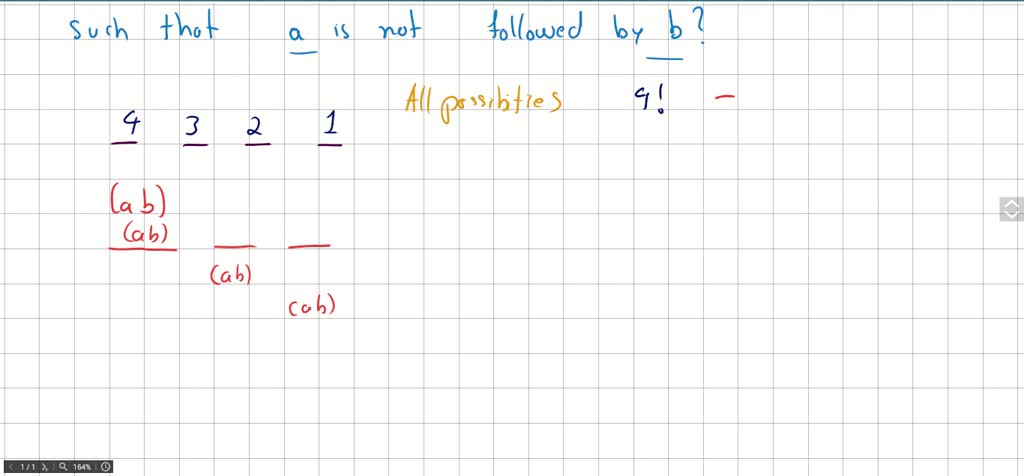 such that a is not followed by b?
All possibities 4! -
4 3 2 1
(ab)
(ab)
(ab)
(ab)
1/1 164%